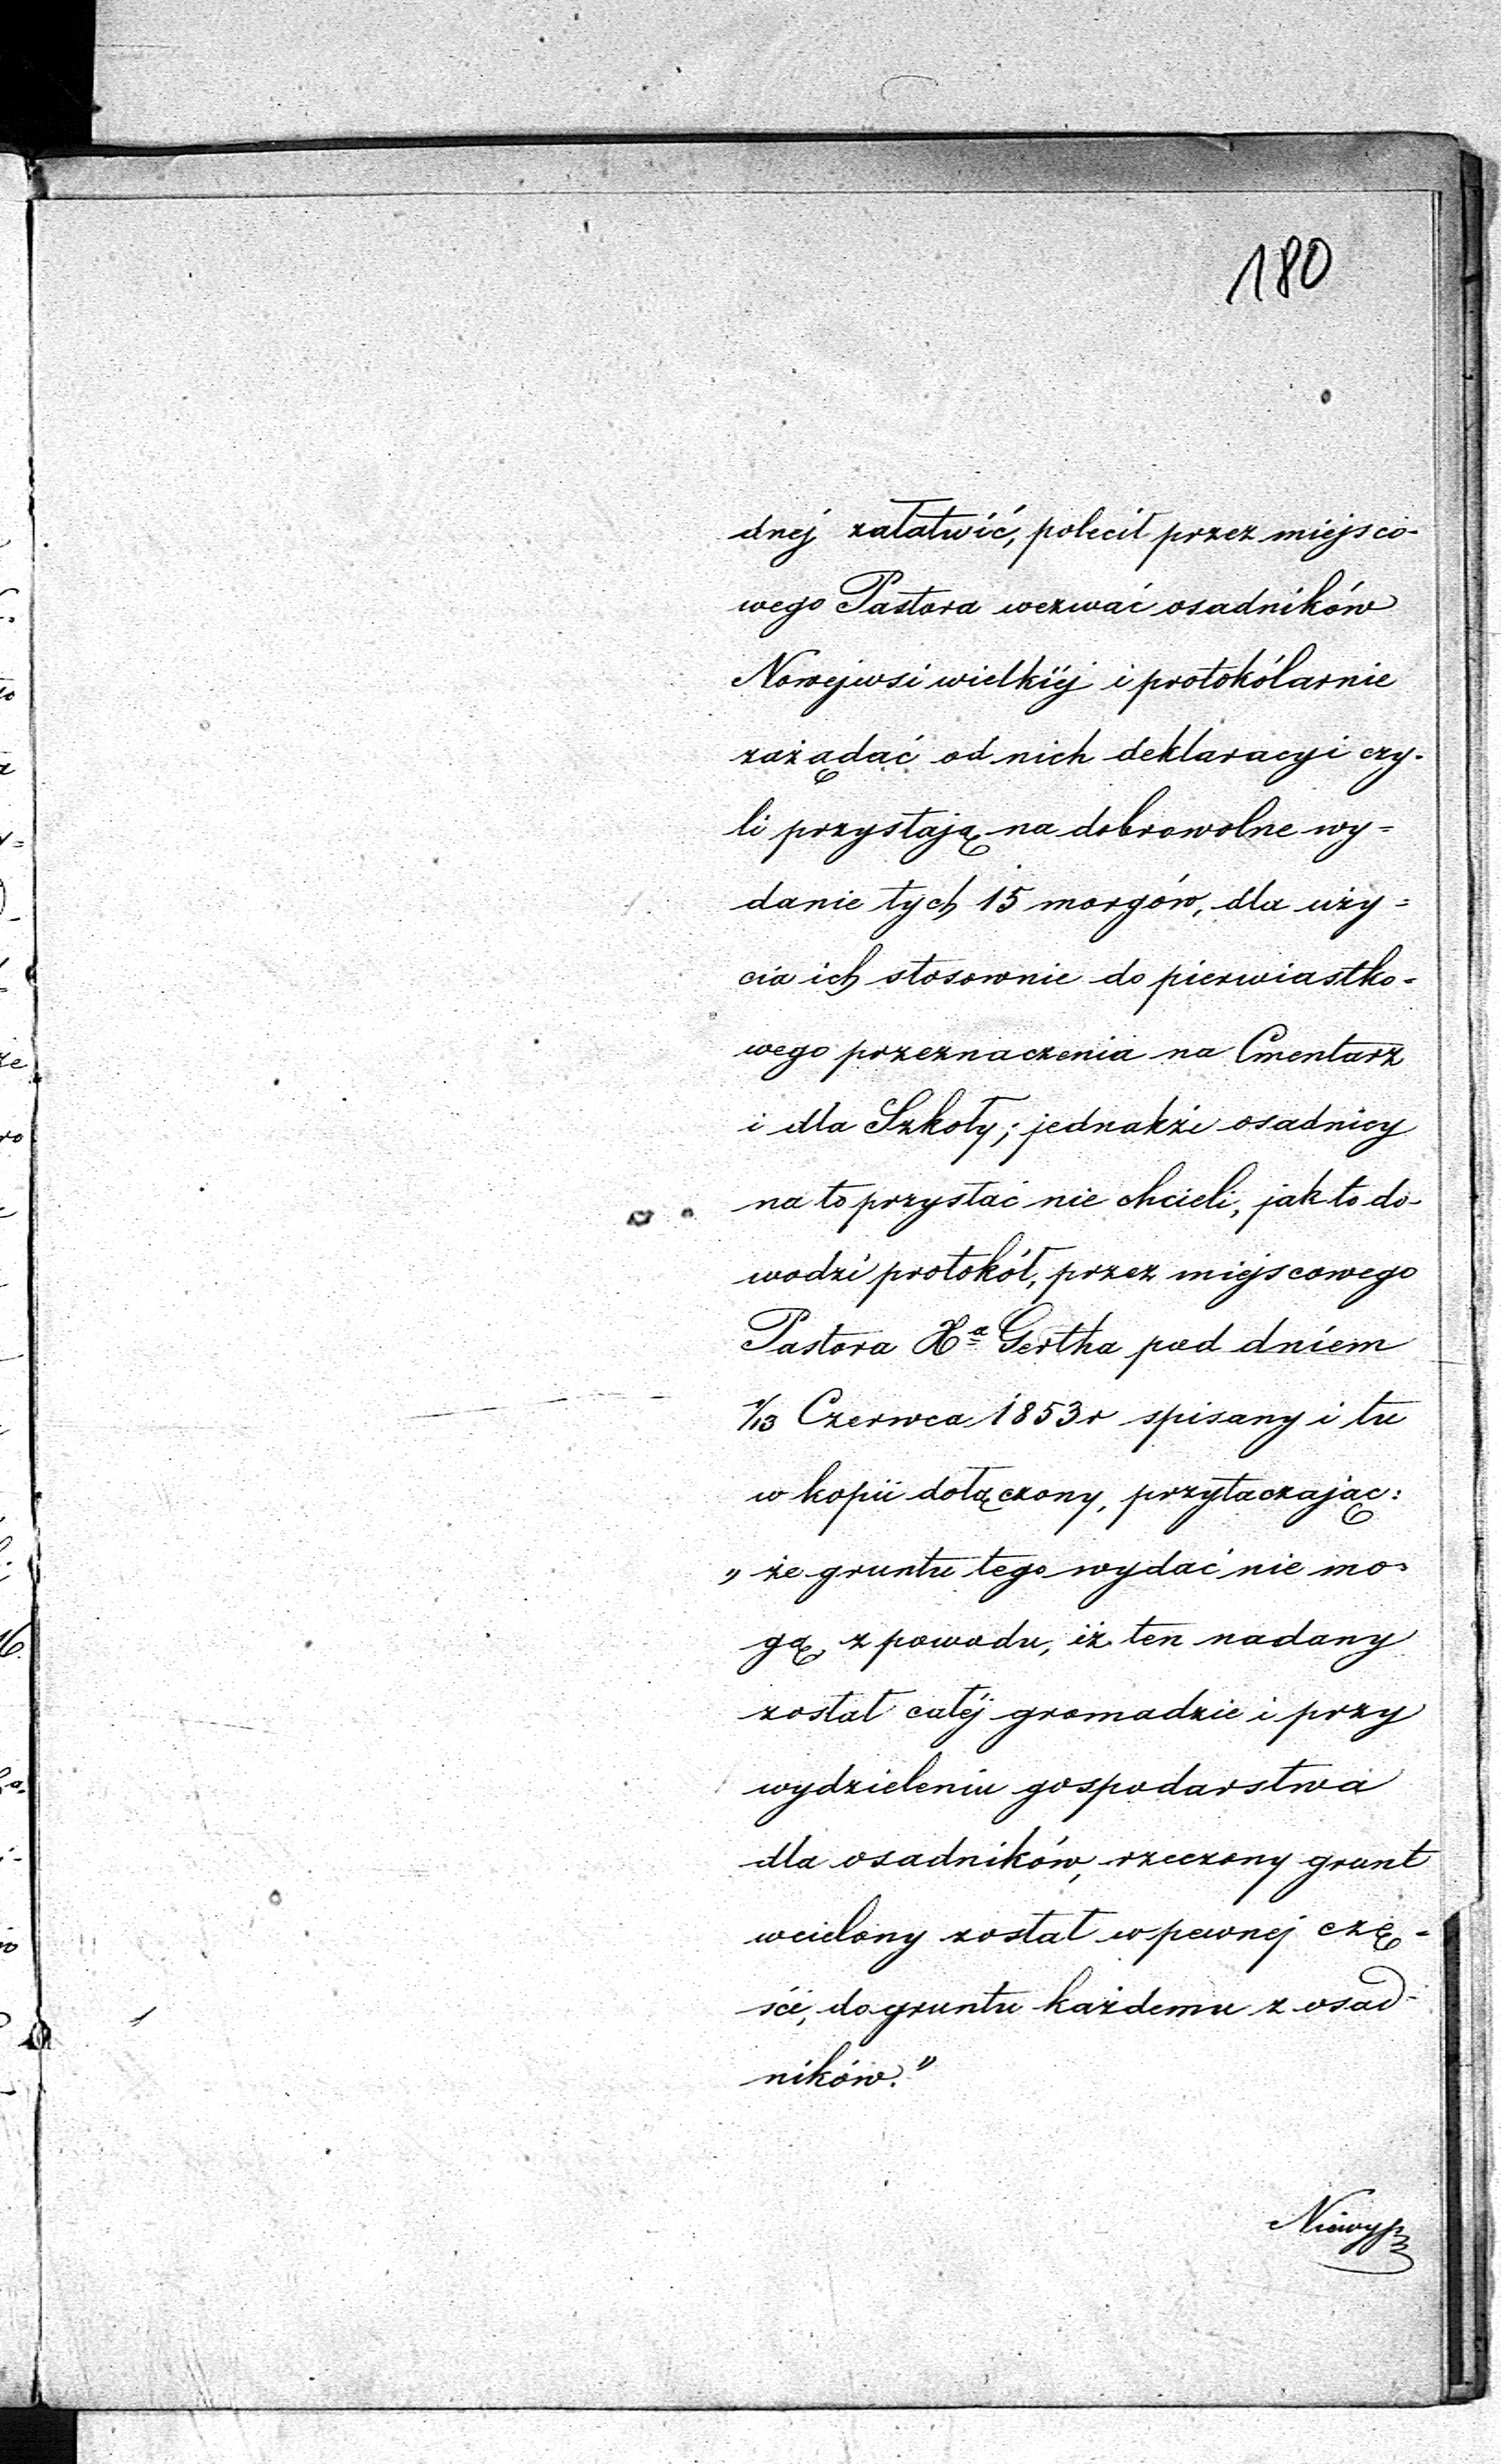 180
dnéj załatwić, polecił przez miejsco-
wego Pastora wezwać osadników
Nowejwsi wielkiéj i protokólarnie
zażądać od nich deklaracyi czy-
li przystają na dobrowolne wy=
danie tych 15 morgów, dla uży=
cia ich stosownie do pierwiastko=
wego przeznaczenia na Cmentarz
i dla Szkoły; jednakże osadnicy
na to przystać nie chcieli, jak to do-
wodzi protokół, przez miejscowego
Pastora Xa Gertha pod dniem
1/13 Czerwca 1853 r spisany i tu
w kopii dołączony, przytaczając:
„że gruntu tego wydać nie mo=
gą, z powodu, iż ten nadany
został całéj gromadzie i przy
wydzieleniu gospodarstwa
dla osadników, rzeczony grunt
wcielony został w pewnéj czę=
ści, do gruntu każdemu z osad-
ników."